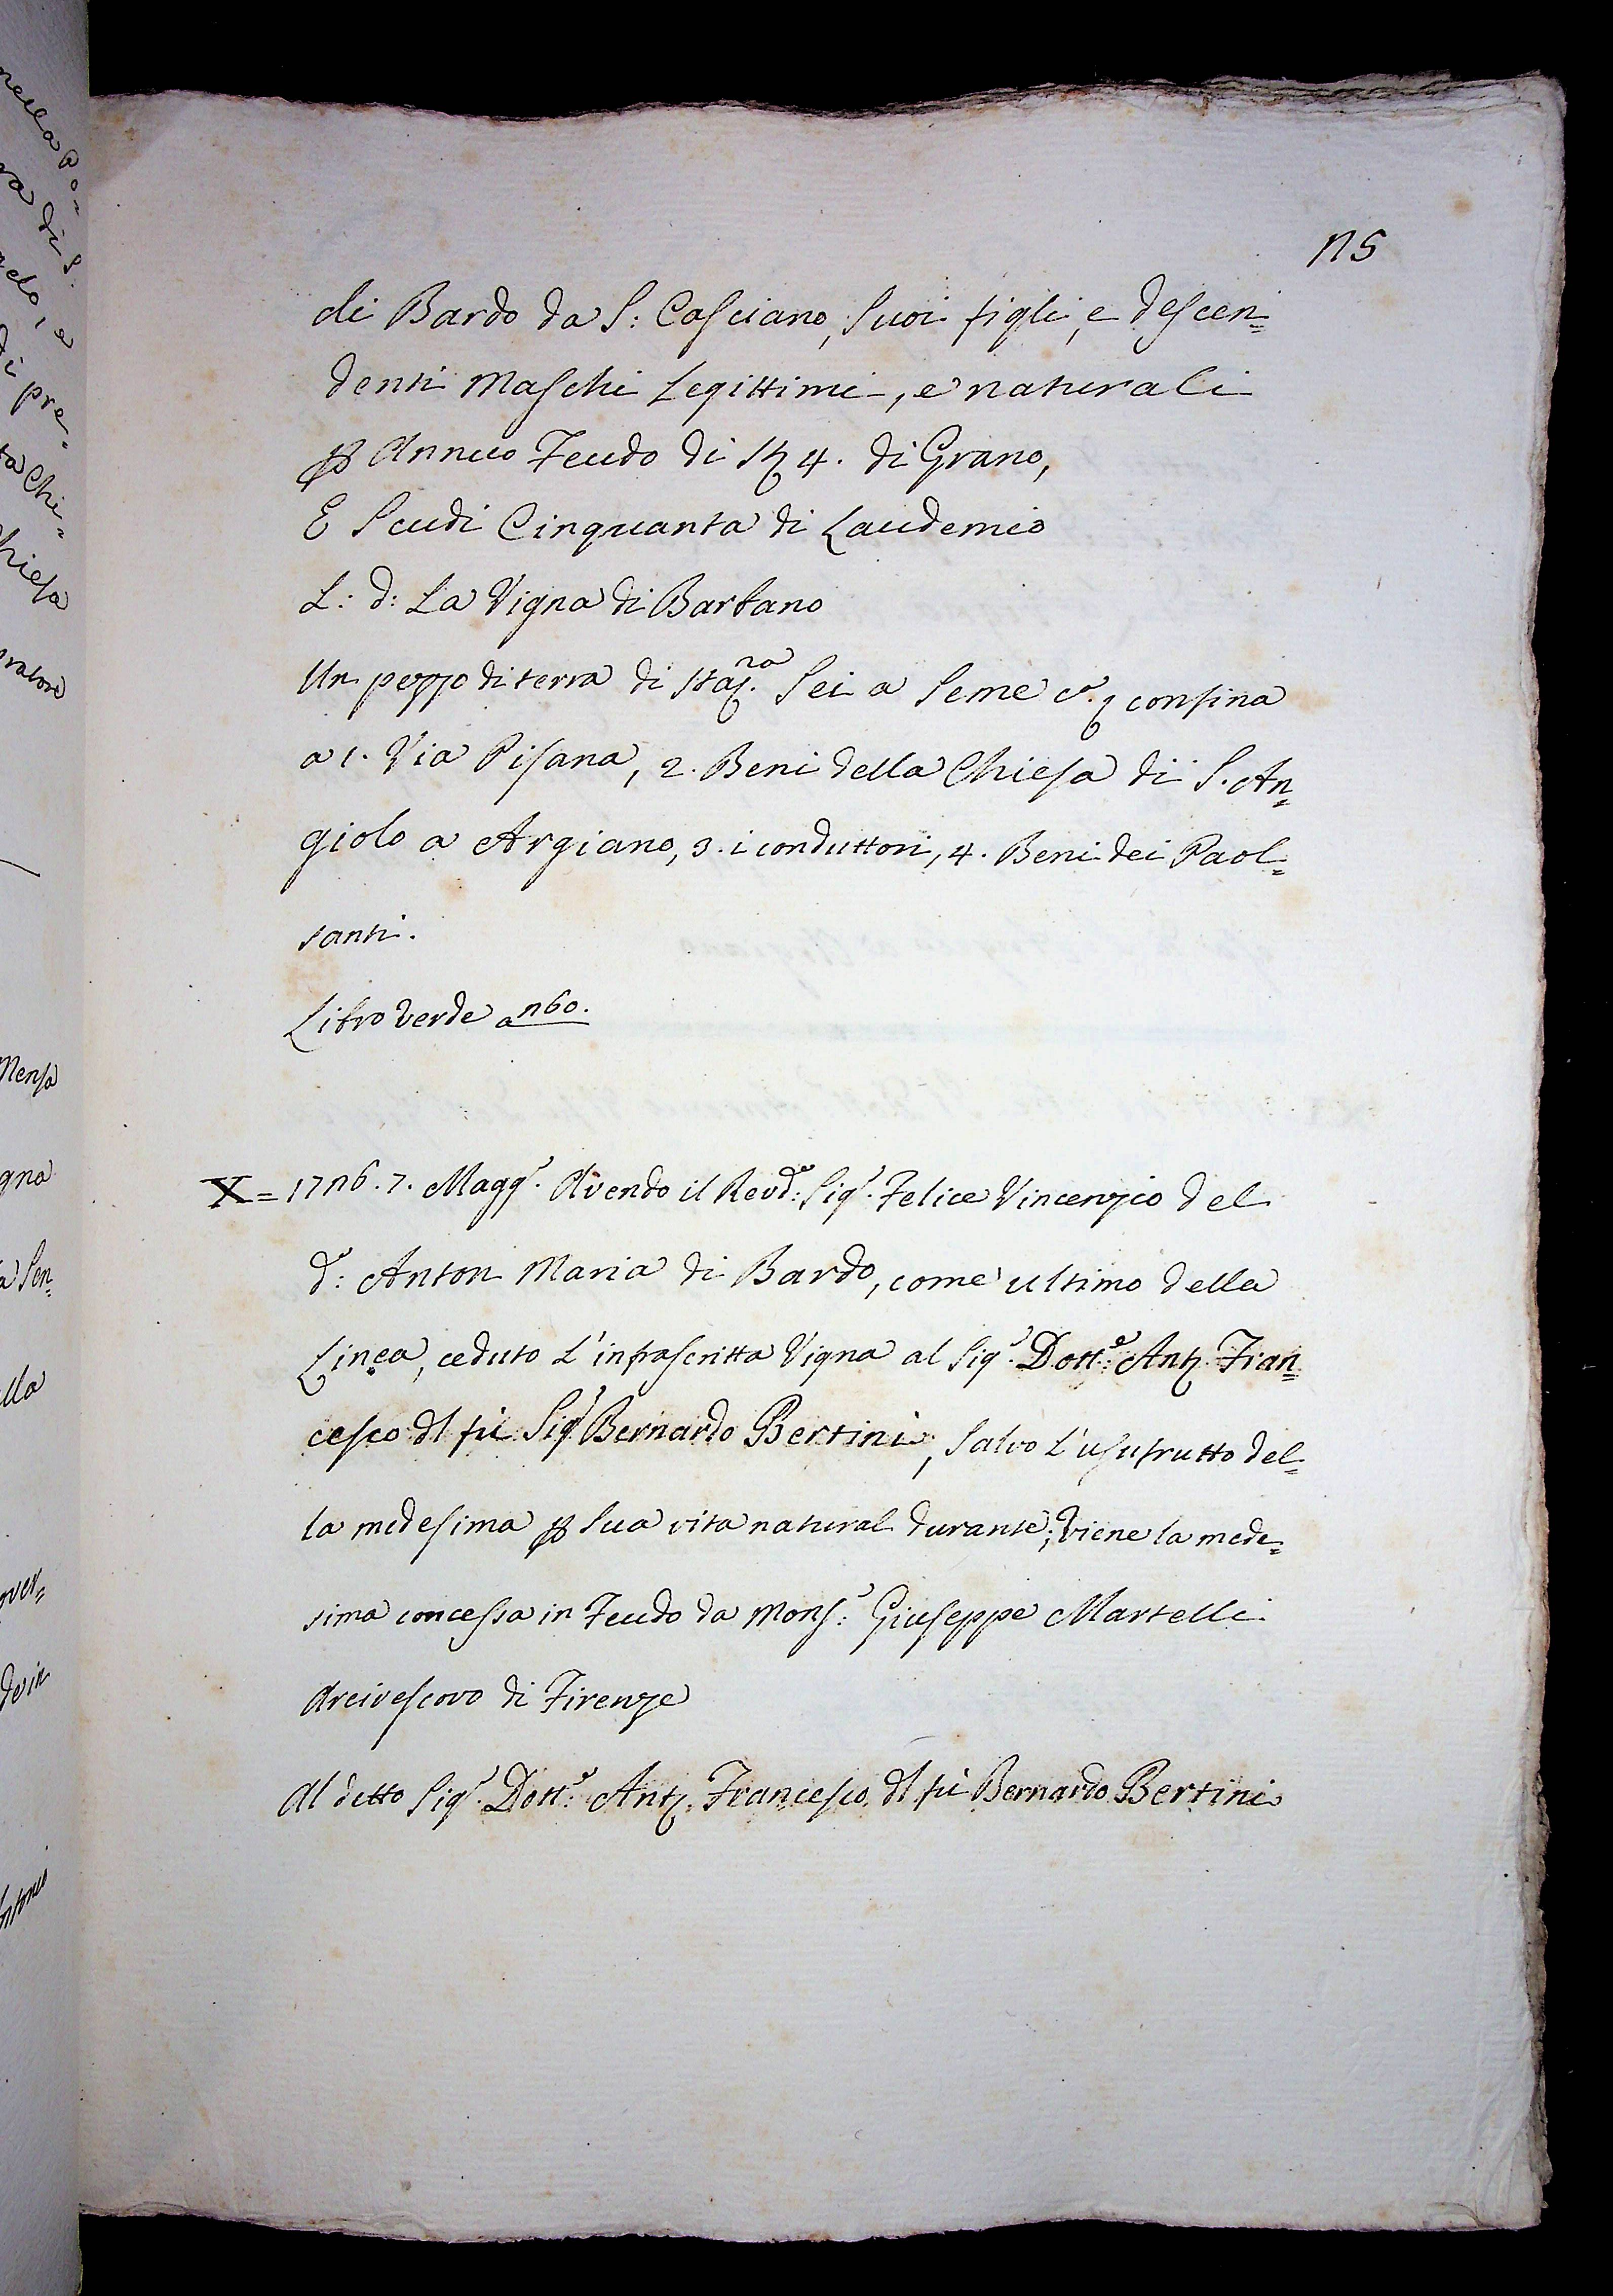 115
di Bardo da S: Casciano, Suoi figli, e descen=
denti Maschi Legittimi, e naturali
ꝑ Annuo Feudo di St 4. di Grano,
E Scudi Cinquanta di Laudemio
L: d: La Vigna di Barbano
Un pezzo di terra di Staᵣᵃ. Sei a Seme cᵃ. confina
a 1. Via Pisana, 2. Beni della Chiesa di S. An=
giolo a Argiano, 3. i conduttori, 4. Beni dei Paol=
santi.
Libro verde a 160.
X = 1736. 7. Maggᵒ. Avendo il Revdᵒ: Sigʳ. Felice Vincenzio del
dᵒ: Anton Maria di Bardo, come ultimo della
Linea, ceduto L'infrascritta Vigna al Sigʳ. Dottʳᵉ: Antᵒ. Fran=
cesco dl fù Sigʳ Bernardo Bertini, Salvo L'usufrutto del=
la medesima ꝑ Sua vita natural durante; viene la mede=
sima concessa in Feudo da Monsʳ: Giuseppe Martelli
Arcivescovo di Firenze
Al detto Sigʳ. Dottʳᵉ: Antᵒ. Francesco dl fù Bernardo Bertini